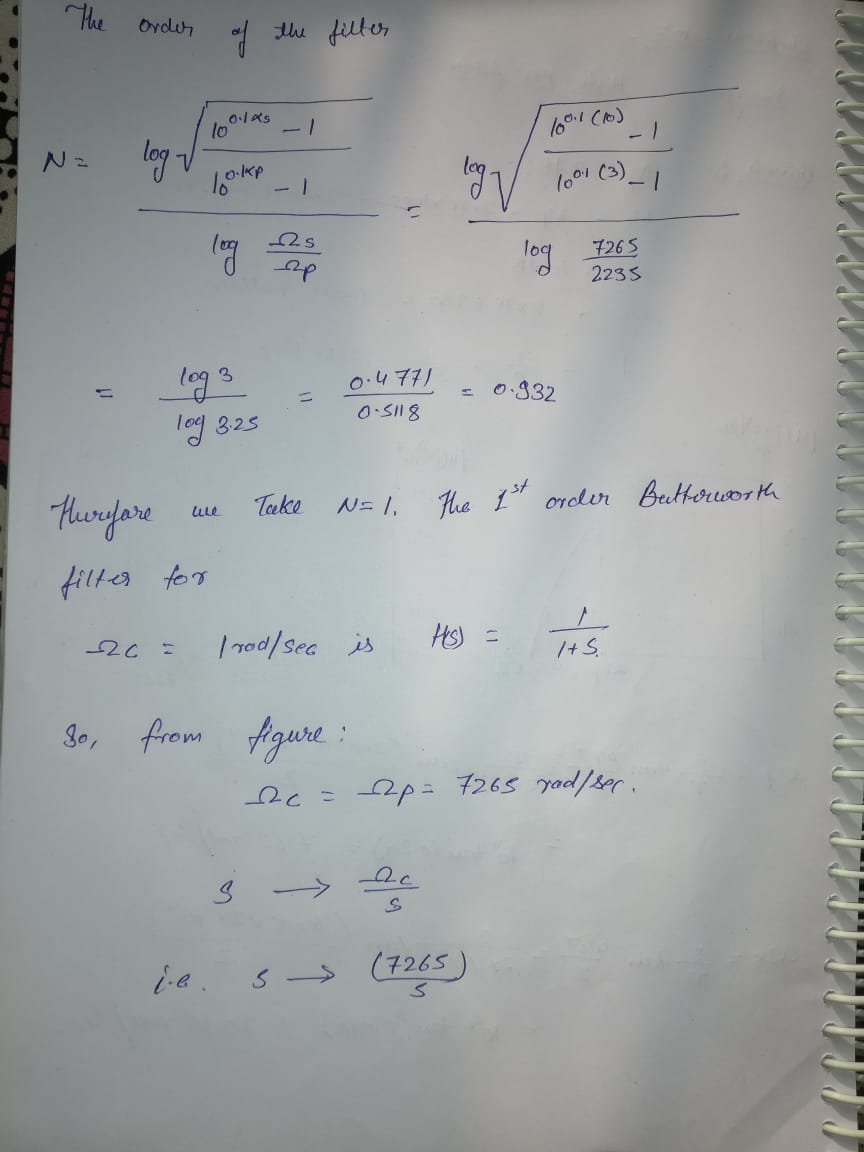 The order of the filter
N = log √((10^0.1αs − 1)/(10^0.1αp − 1)) / log (Ωs/Ωp) = log √((10^0.1(10) − 1)/(10^0.1(3) − 1)) / log (7265/2235)
= log 3 / log 3.25 = 0.4771 / 0.5118 = 0.932
Therefore we Take N = 1. The 1st order Butterworth
filter for
Ωc = 1 rad/sec is H(s) = 1/(1+S).
So, from figure :
Ωc = Ωp = 7265 rad/sec.
S → Ωc/S
i.e. S → (7265)/S